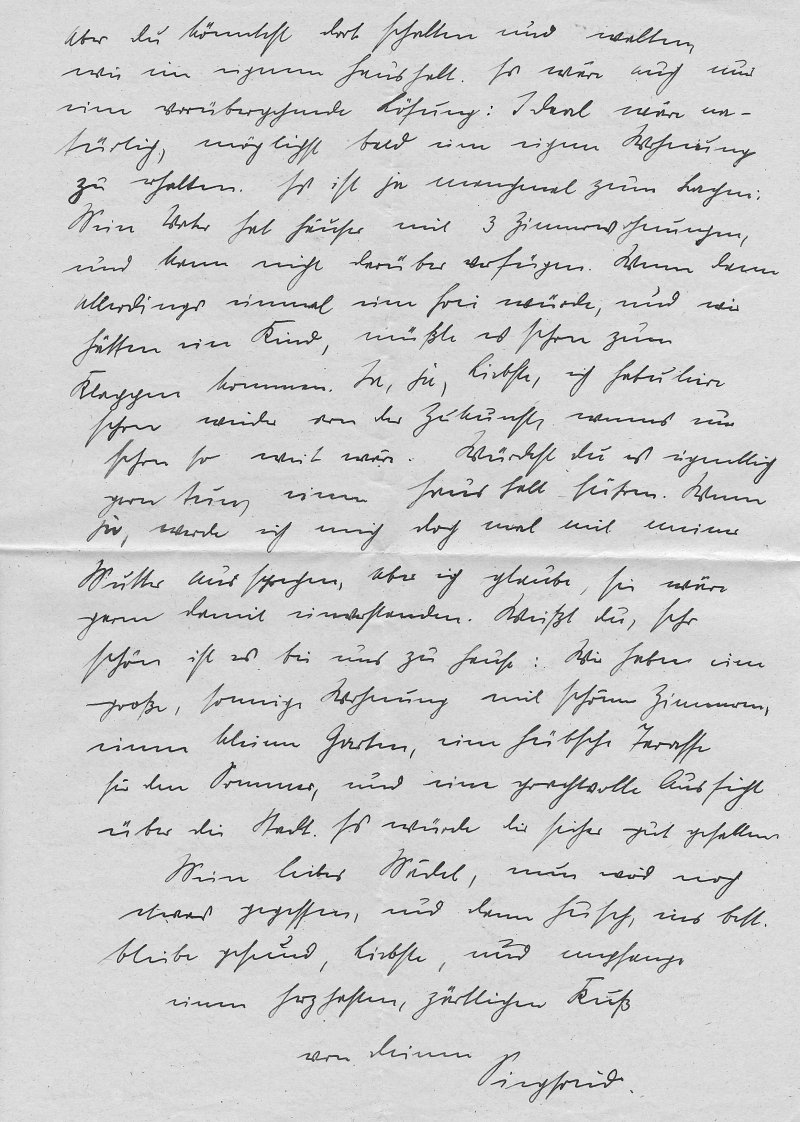 Aber du könntest dort schalten und walten,
wie im eignen Haushalt. Es wäre auch nur
eine vorübergehende Lösung: Ideal wäre na-
türlich, möglichst bald eine eigne Wohnung
zu erhalten. Es ist ja manchmal zum Lachen:
Mein Vater hat Häuser mit 3 Zimmerwohnungen,
und kann nicht darüber verfügen. Wenn dann
allerdings einmal eine frei würde, und wir
hätten ein Kind, müßte es schon zum
Klappen kommen. Ja, ja, Liebste, ich fabuliere
schon wieder von der Zukunft, wenns nur
schon so weit wäre. Würdest du es eigentlich
gern tun, einen Haushalt führen. Wenn
ja, werde ich mich doch mal mit meiner
Mutter aussprechen, aber ich glaube, sie wäre
gern damit einverstanden. Weißt du, sehr
schön ist es bei uns zu Hause: Wir haben eine
große, sonnige Wohnung mit schönen Zimmern,
einen kleinen Garten, eine hübsche Terasse
für den Sommer, und eine prachtvolle Aussicht
über die Stadt. Es würde dir sicher gut gefallen.
Mein liebes Mädel, nun wird noch
etwas gegessen, und dann husch, ins Bett.
bleibe gesund, Liebste, und empfange
einen herzhaften, zärtlichen Kuß
von deinem
Siegfried.